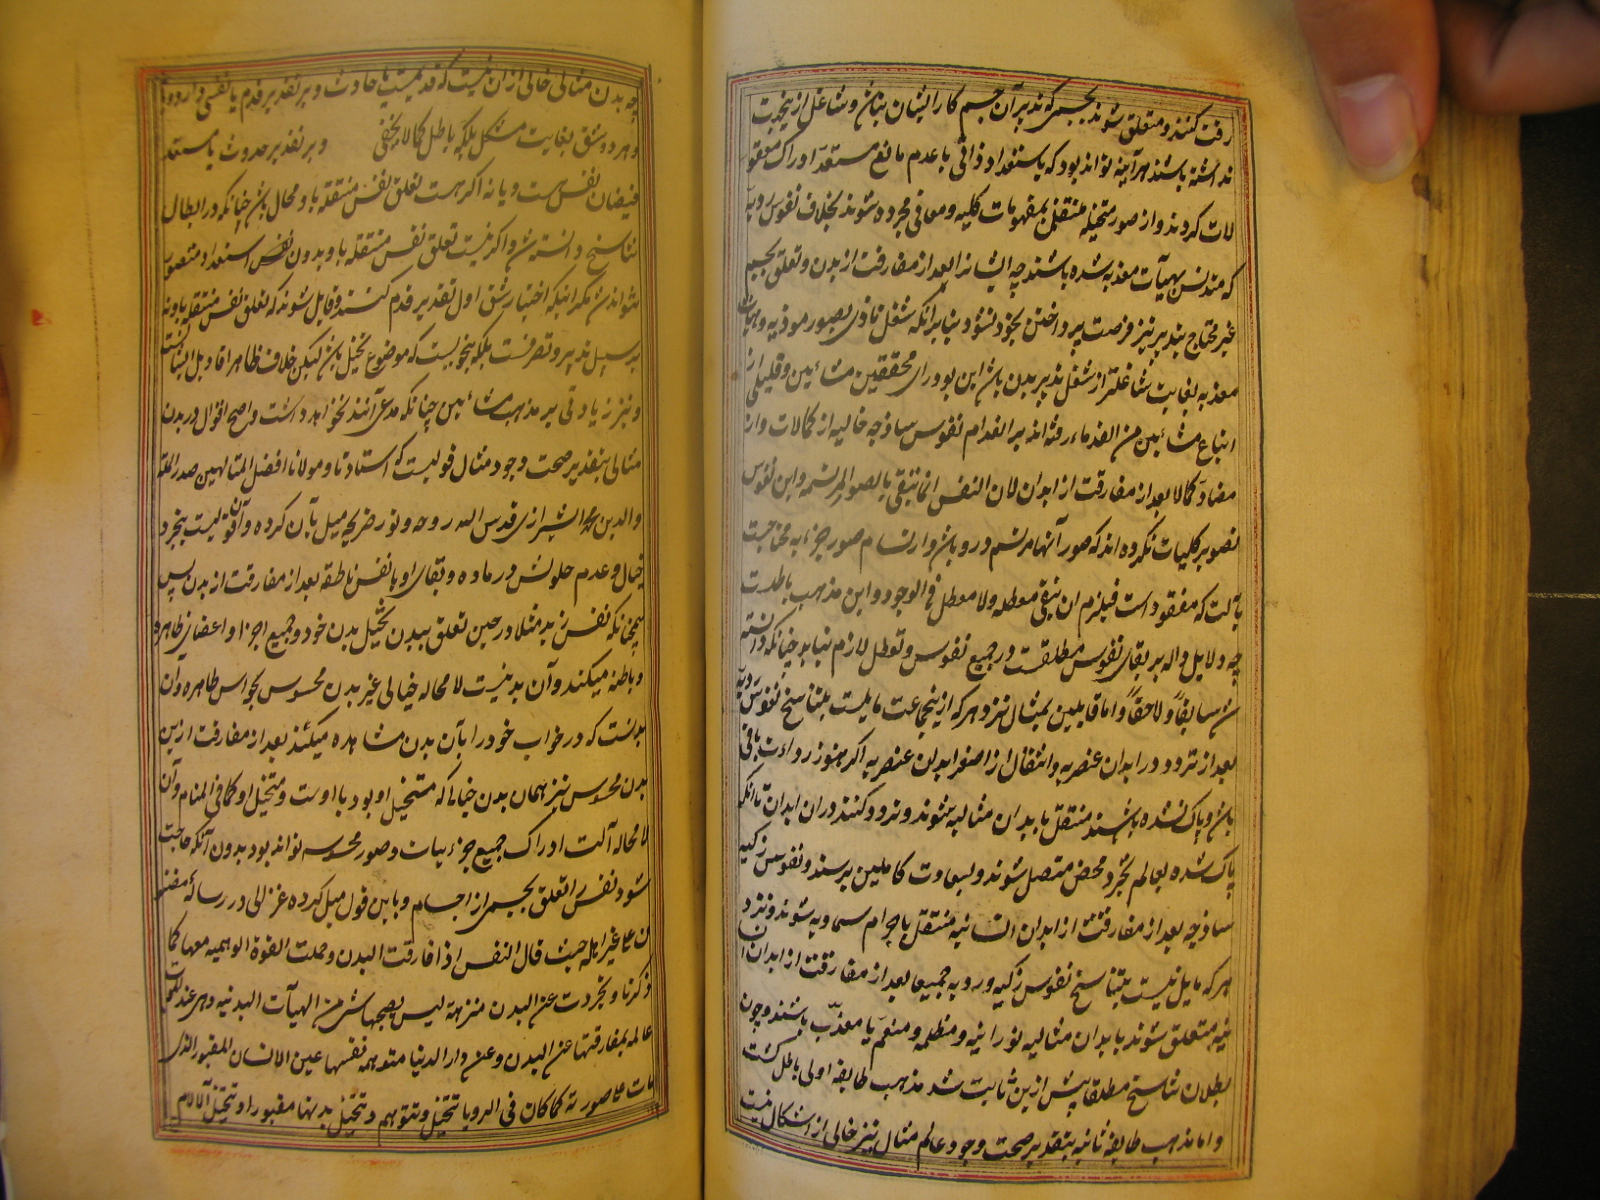 رفت کنند و متعلق شوند بجسمی که تدبیر آن جسم کار ایشان نباش و شاغل ازینجهت
نداشته باشند هر آینه تواند بود که باستعداد ذاتی با عدم مانع مستعد ادراک معقو
لات کردند و از صور متخیله منتقل بمفهومات کلیه و معانی مجرده شوند بخلاف نفوس ردیه
که متدنس بهیآت معذبه شده باشند چه ایشانرا بعد از مفارقت از بدن و تعلق بجسم
غیر محتاج بتدبیر نیز فرصت پرداختن بخود نشود بنا برآنکه شغل تاذی بصور موذیه و هیآت
معذبه بغایت شاغلتر از شغل تدبیر بدن باش این بود رای محققین مشائین و قلیلی از
اتباع مشائین من القدماء رفته اند بر انعدام نفوس ساذجه خالیه از کمالات و از
مضاد کمالا بعد از مفارقت از ابدان لان النفس انما تبقی بالصور المرتسمه و این نفوس
تصویر کلیات نکرده اند که صور آنها مرتسم درو باش و ارتسام صور جزءیه محتاجت
بآلت که مفقود است فیلزم ان یبقی معطله ولا معطل فی الوجود و این مذهب باطلست
چه دلایل داله بر بقای نفوس مطلقست در جمیع نفوس و تعطل لازم نیاید چنانکه دانسته
ش سابقاً و لاحقاً و اما قایلین بمثال نیز و هر که ازینجماعت مایلست بتناسخ نفوس ردیه
بعد از تردد در ابدان عنصریه و انتقال از اصغر ابدان عنصریه اکر هنوز رداءت باقی
باش و پاک نشده باشند منتقل بابدان مثالیه شوند و تردد کنند دران ابدان تا آنکه
پاک شده بعالم تجرد محض متصل شوند و بسعادت کاملین برسند و نفوس زکیه
ساذجه بعد از مفارقت از ابدان انسانیه منتقل باجرام سماویه شوند و نزد
هر که مایل نیست بتناسخ نفوس زکیه و ردیه جمیعا بعد از مفارقت از ابدان
نیه متعلق شوند بابدان مثالیه نورانیه و مظلمه و متنعم یا معذب باشند و چون
بطلان تناسخ مطلقا پیش ازین ثابت شد مذهب طایفه اولی باطل کشت
و اما مذهب طایفه ثانیه بتقدیر صحت وجود عالم مثال نیز خالی از اشکال نیست
چه بدن مثالی خالی از ان نیست که قدیمست یا حادث و بر تقدیر قدم یا نفسی دارد و یا
و هر دو شق بغایت مشکل بلکه باطل کمالا یخفی و بر تقدیر حدوث یا مستعد
فیضان نفس هست و یا نه اکر هست تعلق نفس منتقله باو محال باش چنانکه در ابطال
تناسخ دانسته ش و اکر نیست تعلق نفس منتقله باو بدون نفس استعداد متصور
نتواند ش مکر اینکه اختیار شق اول تقدیر قدم کنند و قایل شوند که تعلق نفس منتقله باو نه
بر سبیل تدبیر و تصرفست بلکه بنحویست که موضوع تخیل باش لیکن خلاف ظاهر اقاویل ایشانست
و نیز زیادتی بر مذهب مشائین چنانکه مدعی آنند نخواهد داشت و اصح اقوال در بدن
مثالی بتقدیر صحت وجود مثال قولیست که استادنا و مولانا افضل المتالهین صدر المله
والدین محمد الشیرازی قدس الله روحه و نور ضریحه میل بآن کرده و آن قولیست بتجرد
خیال و عدم حلولش در ماده و بقای او با نفس ناطقه بعد از مفارقت از بدن پس
همچنانکه نفس زید مثلا در حین تعلق ببدن تخیل بدن خود و جمیع اجزا و اعضای ظاهره
و باطنه میکند و آن بدنیست لا محاله خیالی غیر بدن محسوس بحواس ظاهره و آن
بدنست که در خواب خود را بآن بدن مشاهده میکند بعد از مفارقت ازین
بدن محسوس نیز همان بدن خیالی که متخیل او بود با اوست و متخیل او کما فی المنام و آن
لا محاله آلت ادراک جمیع جزءییات و صور محسوسه تواند بود بدون آنکه حاجت
شود نفس را تعلق بجسمی از اجسام و باین قول میل کرده غزالی در رساله مضنو
ن علی غیر اهله حیث قال النفس اذا فارقت البدن و حملت القوة الوهمیه معها کما
ذکرنا و تجردت عن البدن منزهة لیس یصحبها شئ من الهیآت البدنیه و هی عند الموت
عالمه بمفارقتها عن البدن و عن دار الدنیا متوهمه نفسها عین الانسان المقبور الذی
مات علی صورته کما کان فی الرویا تتخیل و تتوهم و تتخیل بدنها مقبورا و تتخیل الآلام